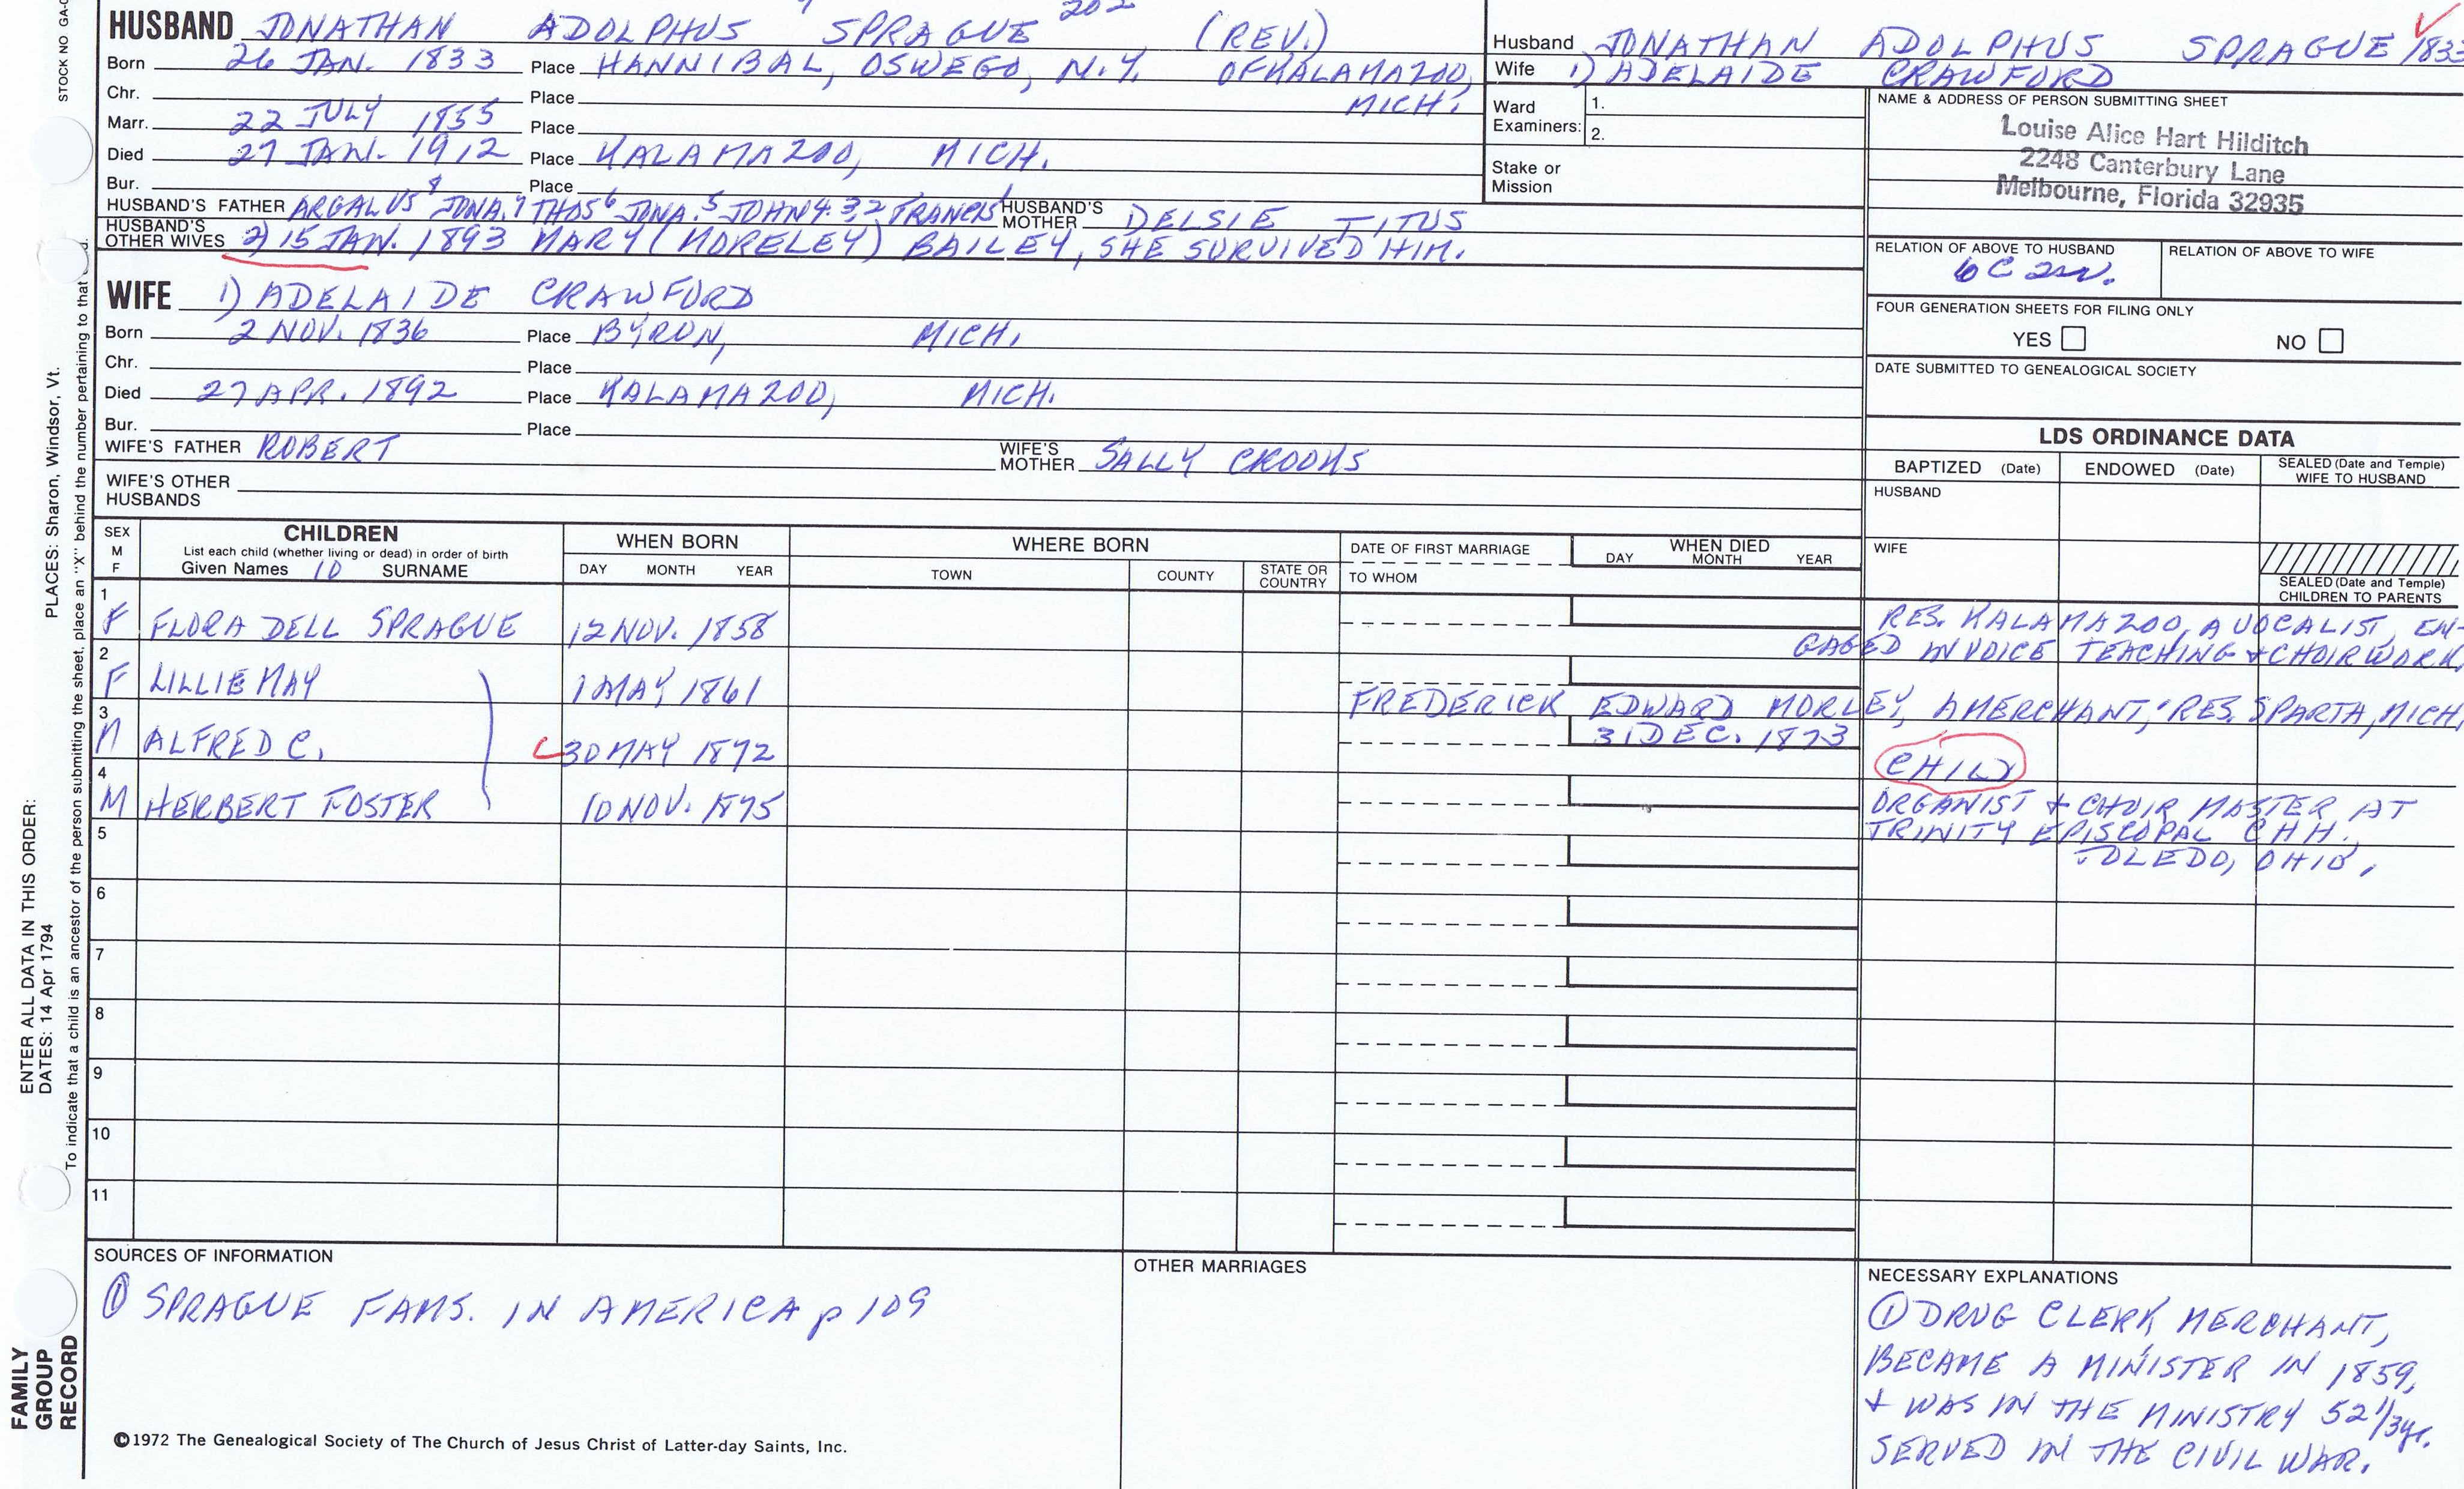 STOCK NO GA-
HUSBAND JONATHAN ADOLPHUS SPRAGUE 202 (REV.)
Born 26 JAN. 1833 Place HANNIBAL, OSWEGO, N.Y. OF KALAMAZOO,
Chr. Place MICH.
Marr. 22 JULY 1855 Place
Died 27 JAN. 1912 Place KALAMAZOO, MICH.
Bur. Place
HUSBAND'S FATHER ARGALUS 8 JONA. 7 THOS 6 JONA. 5 JOHN 4. 3, 2 FRANCIS 1 HUSBAND'S MOTHER DELSIE TITUS
HUSBAND'S OTHER WIVES 2) 15 JAN. 1893 MARY (MORELEY) BAILEY, SHE SURVIVED HIM.
WIFE 1) ADELAIDE CRAWFORD
Born 2 NOV. 1836 Place BYRON, MICH.
Chr. Place
Died 27 APR. 1892 Place KALAMAZOO, MICH.
Bur. Place
WIFE'S FATHER ROBERT WIFE'S MOTHER SALLY CROOKS
WIFE'S OTHER HUSBANDS
Husband JONATHAN ADOLPHUS SPRAGUE 1833
Wife 1) ADELAIDE CRAWFORD
Ward Examiners: 1.
2.
Stake or Mission
NAME & ADDRESS OF PERSON SUBMITTING SHEET
Louise Alice Hart Hilditch
2248 Canterbury Lane
Melbourne, Florida 32935
RELATION OF ABOVE TO HUSBAND RELATION OF ABOVE TO WIFE
6C 2
FOUR GENERATION SHEETS FOR FILING ONLY
YES NO
DATE SUBMITTED TO GENEALOGICAL SOCIETY
LDS ORDINANCE DATA
BAPTIZED (Date) ENDOWED (Date) SEALED (Date and Temple) WIFE TO HUSBAND
HUSBAND
WIFE
SEALED (Date and Temple) CHILDREN TO PARENTS
SEX M F CHILDREN WHEN BORN WHERE BORN DATE OF FIRST MARRIAGE WHEN DIED
List each child (whether living or dead) in order of birth
Given Names 10 SURNAME DAY MONTH YEAR TOWN COUNTY STATE OR COUNTRY TO WHOM DAY MONTH YEAR
1 F FLORA DELL SPRAGUE 12 NOV. 1858 RES. KALAMAZOO, A VOCALIST, EN-
GAGED IN VOICE TEACHING & CHOIR WORK
2 F LILLIE MAY 1 MAY 1861 FREDERICK EDWARD MORLEY, A MERCHANT, RES. SPARTA, MICH
3 M ALFRED C. 30 MAY 1872 31 DEC. 1873 CHILD
4 M HERBERT FOSTER 10 NOV. 1875 ORGANIST & CHOIR MASTER AT
TRINITY EPISCOPAL CHH.,
TOLEDO, OHIO.
5
6
7
8
9
10
11
SOURCES OF INFORMATION
① SPRAGUE FAMS. IN AMERICA p 109
OTHER MARRIAGES
NECESSARY EXPLANATIONS
① DRUG CLERK, MERCHANT,
BECAME A MINISTER IN 1859,
& WAS IN THE MINISTRY 52 1/3 yr.
SERVED IN THE CIVIL WAR.
©1972 The Genealogical Society of The Church of Jesus Christ of Latter-day Saints, Inc.
FAMILY
GROUP
RECORD
ENTER ALL DATA IN THIS ORDER:
DATES: 14 Apr 1794
PLACES: Sharon, Windsor, Vt.
To indicate that a child is an ancestor of the person submitting the sheet, place an "X" behind the number pertaining to that